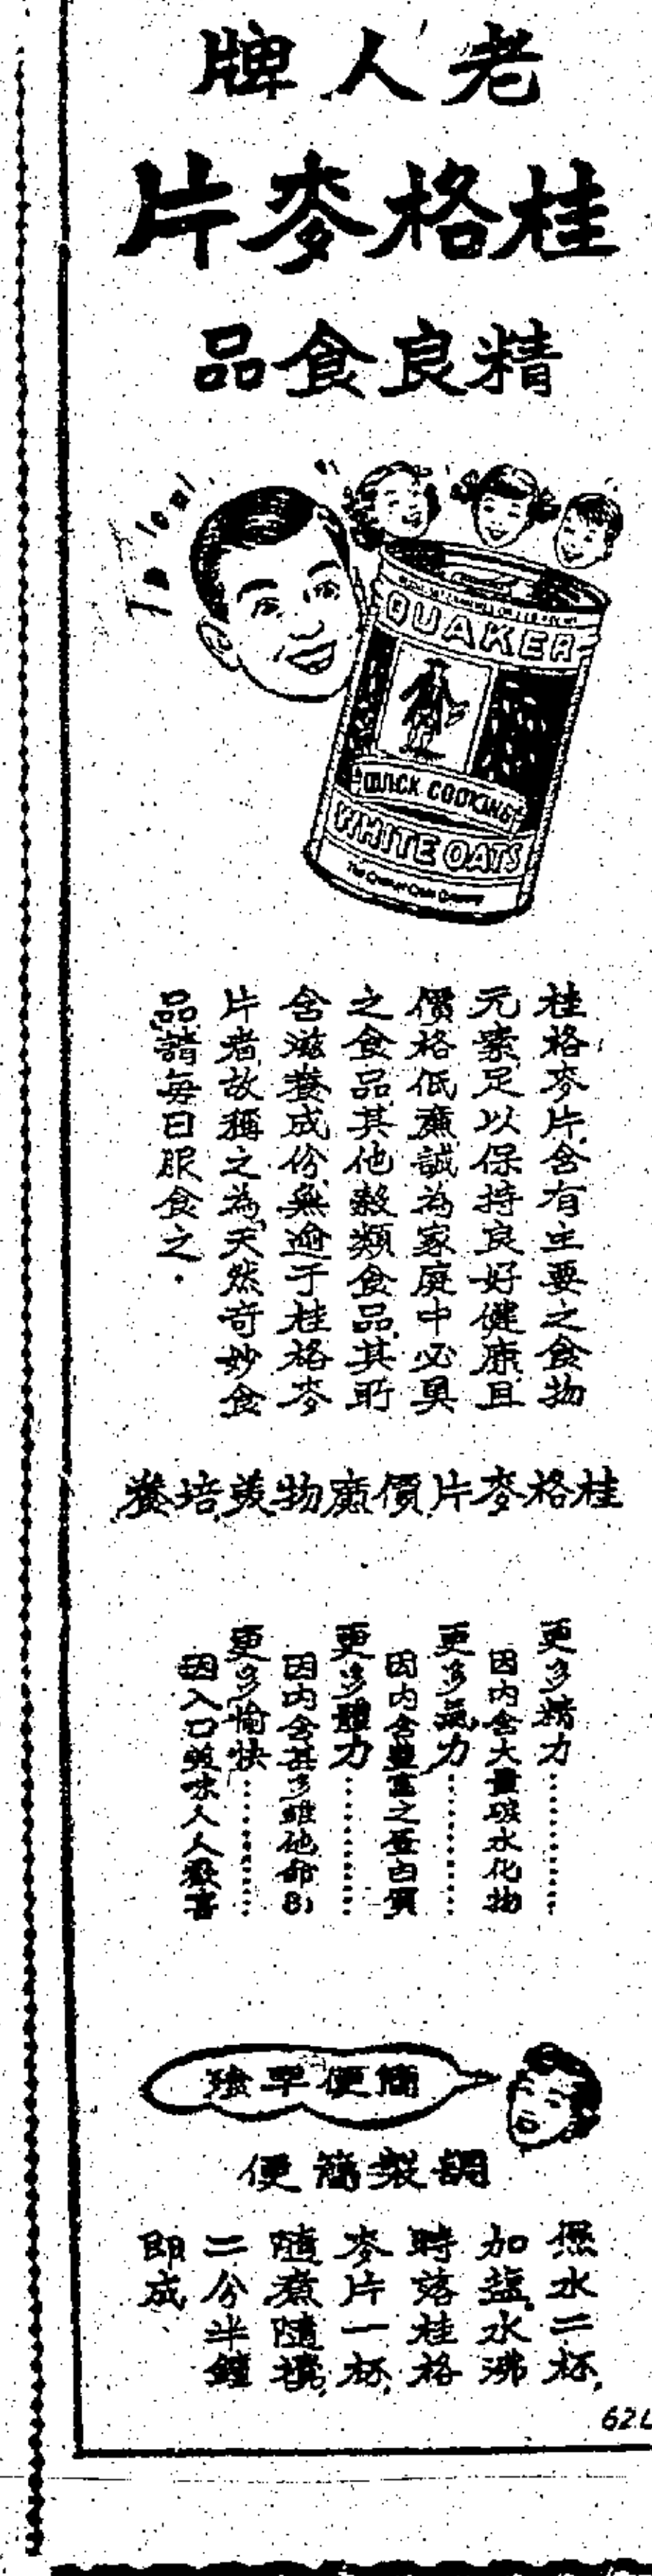 老人牌
桂格麥片
精良食品
QUAKER
QUICK COOKING
WHITE OATS
The Quaker Oats Company
桂格麥片含有主要之食物
元素足以保持良好健康且
價格低廉誠為家庭中必具
之食品其他穀類食品其所
含滋養成份無逾于桂格麥
片者故稱之為天然奇妙食
品請每日服食之.
桂格麥片價廉物美培養
更多精力………
因內含大量碳水化物
更多氣力………
因內含豐富之蛋白質
更多體力………
因內含甚多維他命B1
更多愉快………
因入口美味人人歡喜
簡便早
調製簡便
煲水二杯,
加鹽水沸
時落桂格
麥片一杯,
隨煮隨攪,
二分半鐘
即成